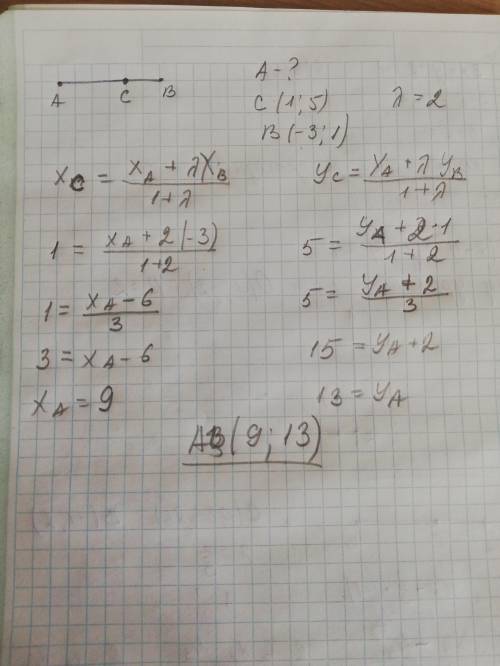 A - ?
A C B
C (1; 5) λ = 2
B (-3; 1)
x_C = (x_A + λ x_B) / (1 + λ) y_C = (y_A + λ y_B) / (1 + λ)
1 = (x_A + 2(-3)) / (1+2) 5 = (y_A + 2·1) / (1 + 2)
1 = (x_A - 6) / 3 5 = (y_A + 2) / 3
3 = x_A - 6 15 = y_A + 2
x_A = 9 13 = y_A
A (9; 13)